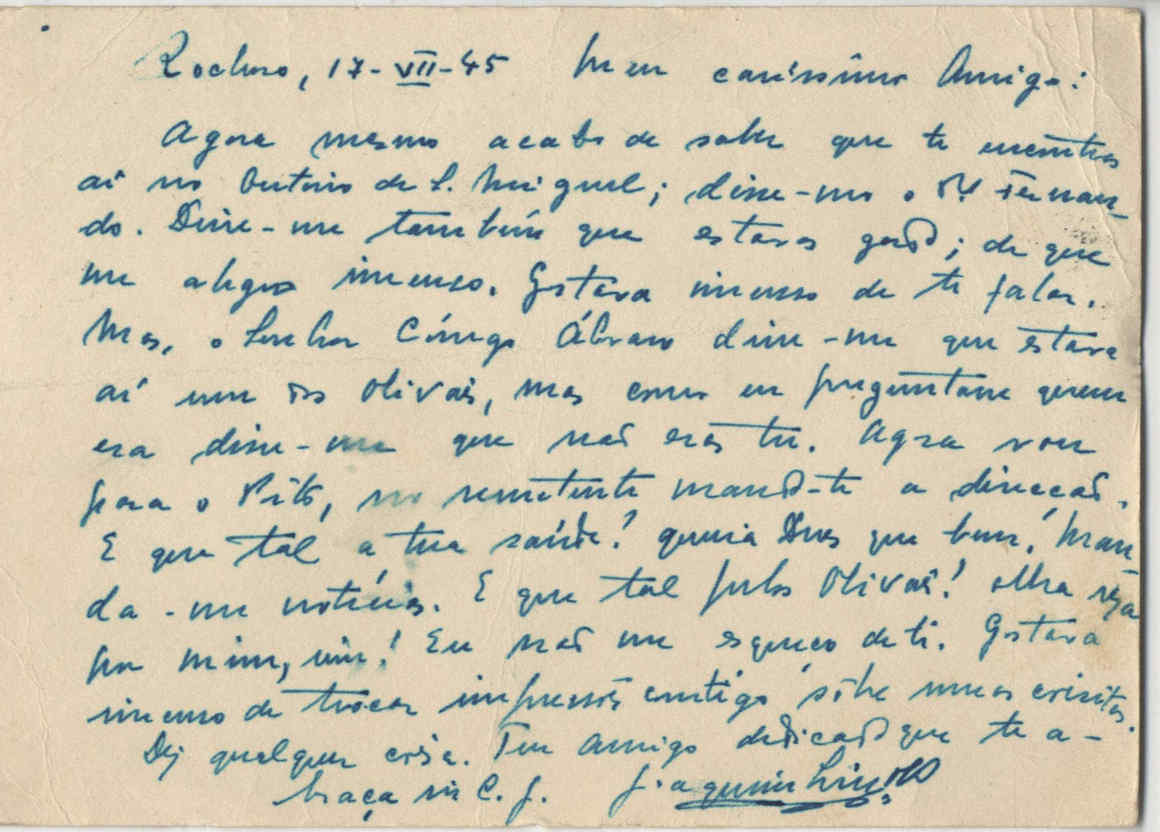 17-VII-45 Meu caríssimo Amigo:
Agora mesmo acabo de saber que te encontras
aí no Outeiro de S. Miguel; disse-mo o Fernan-
do. Disse-me também que estavas gordo; de que
me alegro imenso. Gostava imenso de te falar.
Mas, o Senhor Cónego Álvaro disse-me que estava
aí um dos Olivais, mas como eu perguntasse quem
era disse-me que não eras tu. Agora vou
para o no remetente mando-te a direcção.
E que tal a tua saúde? queira Deus que bem! Man-
da-me notícias. E que tal pelos Olivais? olha reza
por mim, sim! Eu não me esqueço de ti. Gostava
imenso de trocar impressões contigo sôbre umas coisitas.
Diz qualquer coisa. Teu amigo dedicado que te a-
braça in C. J. Joaquim